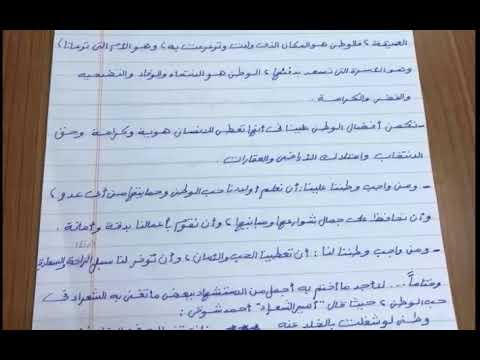 العميقة، فالوطن هو المكان الذى ولدت وترعرعت به، وهو الأم التى ترعانا،
وهو الأسرة التى نسعد بدفئها، الوطن هو الانتماء والوفاء والتضحيه
والفخر والكرامة.
- تكمن أفضال الوطن علينا فى أنها تعطى للانسان هوية وكرامة وحق
الانتخاب وامتلاك الأراضى والعقارات.
- ومن واجب وطننا علينا: أن نعلم أولادنا حب الوطن وحمايتها من أى عدو،
وأن نحافظ على جمال شوارعها ومبانيها، وأن نقوم بأعمالنا بدقة وأمانة.
- ومن واجب وطننا لنا: أن تعطينا الحب والأمان، وأن توفر لنا سبل الراحة والسعادة
وختاماً... لا أجد ما أختم به أجمل من الاستشهاد ببعض ما تغنى به الشعراء فى
حب الوطن، حيث قال "أمير الشعراء" أحمد شوقى:
وطنى لو شغلت بالخلد عنه